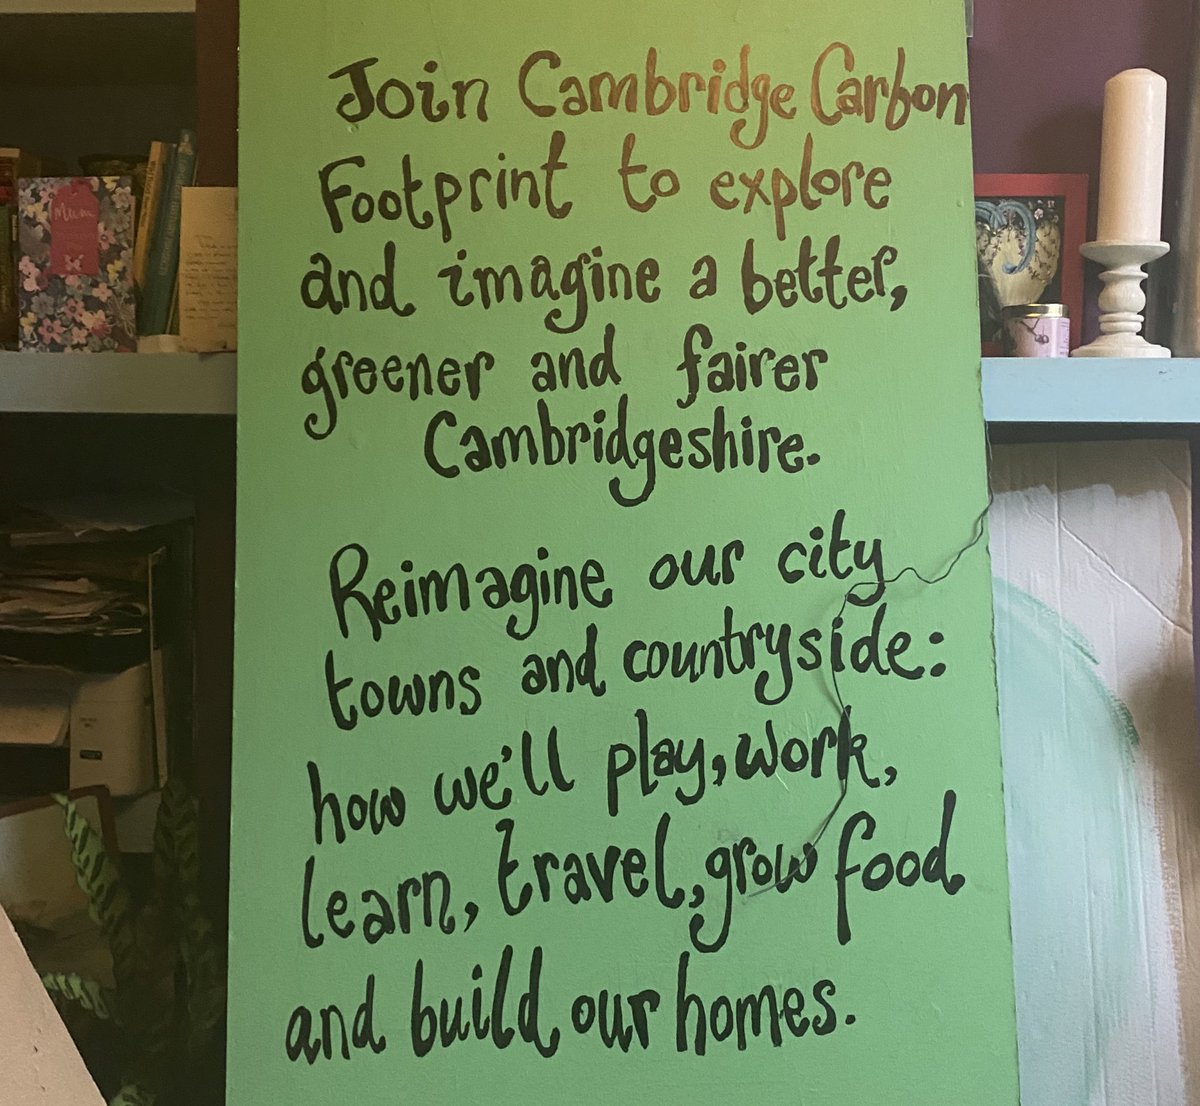 Join Cambridge Carbon
Footprint to explore
and imagine a better,
greener and fairer
Cambridgeshire.
Reimagine our city
towns and countryside:
how we'll play, work,
learn, travel, grow food
and build our homes.
Mum